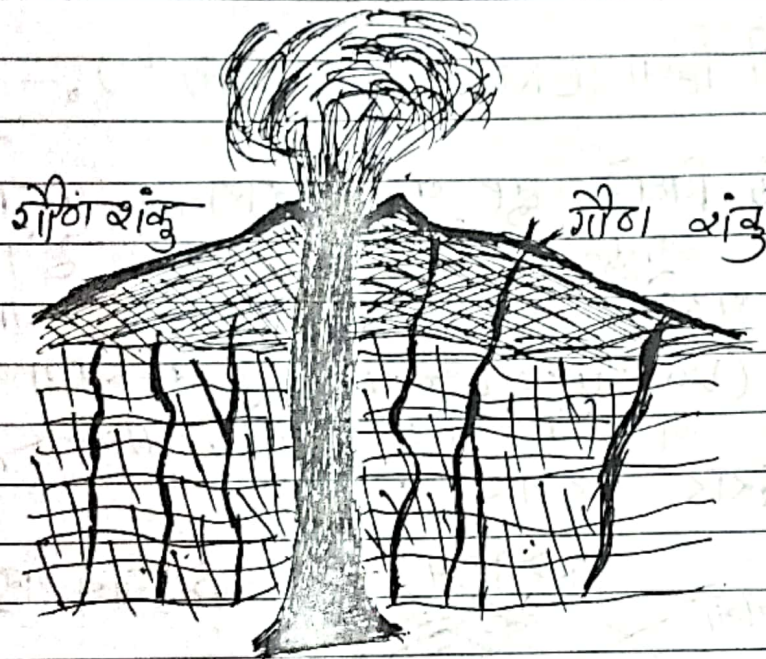 गौण शंकु
गौण शंकु